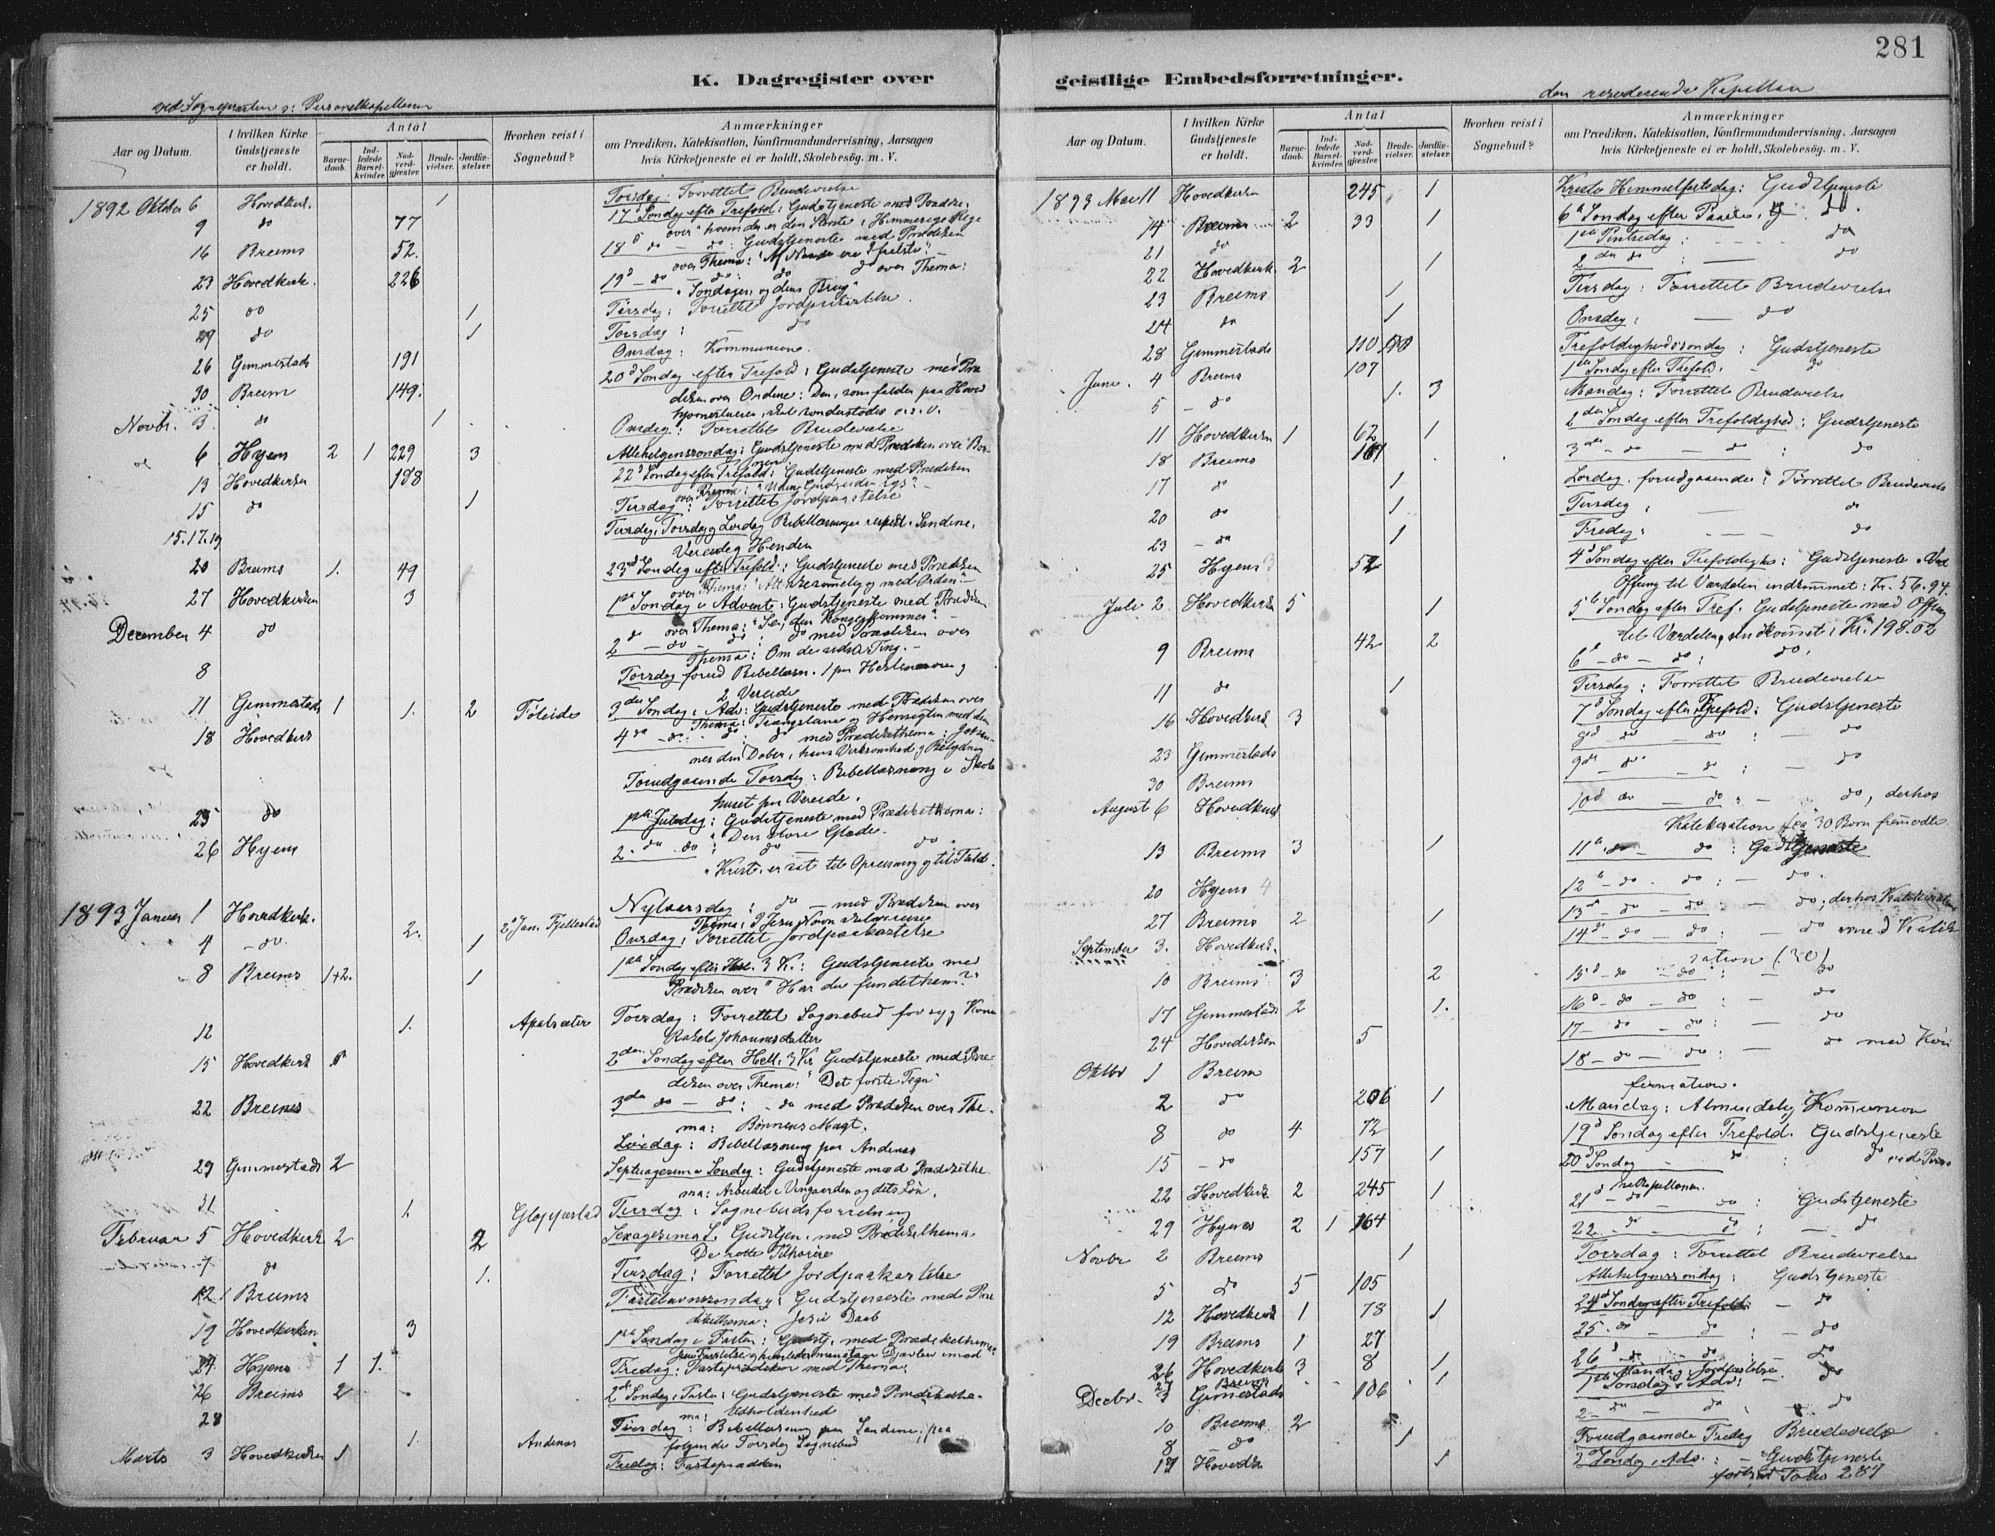 281
K. Dagregister over geistlige Embedsforretninger.
ved Sognepræsten og Personelkapellanen
den residerende Kapellan
Aar og Datum.
I hvilken Kirke Gudstjeneste er holdt.
Antal
Barnedaab.
Indledede Barselkvinder.
Nadverdgjæster.
Brudevielser.
Jordfæstelser.
Hvorhen reist i Sognebud?
Anmærkninger
om Prædiken, Katekisation, Konfirmandundervisning, Aarsagen
hvis Kirketjeneste ei er holdt, Skolebesøg. m. V.
1892 Oktober 6 Hovedkirk. 1 Torsdag: Forrettet Brudevielse
9 do 77 17d Søndag efter Trefold: Gudstjeneste med Præken
over "hvem der er den Største i Himmeriges Rige
16 Breims 52. 18d do - do: Gudstjeneste med Prædiken
over Thema:
23 Hovedkirk. 226 19d - do do: do do over Thema:
"Søndagen og dens Brug"
25 do 1 Tirsdag: Forrettet Jordpaakastelse.
29 do 1 Torsdag: - do
26 Gimmestads 191 Onsdag: Kommunion.
30 Breim 149. 20d Søndag efter Trefold: Gudstjeneste med Præ
diken over Ordene: Den, som falder paa Hoved
hjørnestenen, skal sønderstødes o.s.v.
Novbr. 3. do 1 Onsdag: Forrettet Brudevielse
6 Hyens 2 1 229 3 Allehelgenssøndag: Gudstjeneste med Prædiken over
13 Hovedkirken 188 22d Søndag efter Trefold: Gudstjeneste med Prædiken
over Thema: "Uden Gud, uden Lys"
15 do 1 Tirsdag: Forrettet Jordpaakastelse
15.17.19 Tirsdag, Torsdag og Lørdag Bibellæsninger Sandene,
Vereide og Henden
20 Breims 1. 49 23d Søndag efter Trefold: Gudstjeneste med Prædiken
over Thema:
27 Hovedkirken 3 1ste Søndag i Advent: Gudstjeneste med Prædiken
over Thema: "Se, din Konge kommer"
December 4 do 2 do - do - do med Prædiken over
Thema: Om de sidste Ting.
8 Torsdag forud Bibellæsn.
Vereide
11 Gimmestads 1 1. 2 Føleide 3die Søndag i Adv: Gudstjeneste med Prædiken over
Thema: og Hensigten med den
18 Hovedkirk 4de - do - do: do med Prædikethema:
nes den Døber, hans Virksomhed og Betydning
Forudgaaende Torsdag: Bibellæsning i Skole
huset paa Vereide.
25 do 1ste Juledag: Gudstjeneste med Prædikethema:
"Den store Glæde.
26 Hyens 2. do do: do do.
"Kristus er sat til Opreisning og til Fald.
1893 Januar 1 Hovedkirk. 2. 2d Jan. Fjellestad Nytaarsdag: do - med Prædiken over
Thema: I Jesu Navn
4 - do 1 Onsdag: Forrettet Jordpaakastelse
8 Breims 1+2. 1 1ste Søndag efter Hell. 3 K.: Gudstjeneste med
Prædiken over "Har du fundet ham?"
12 1. Apalsæter Torsdag: Forrettet Sognebud for syg Kone
Rakel Johannesdatter
15 Hovedkirk 2den Søndag efter Hell. 3 Kr Gudstjeneste med Præ
diken over Thema: "Det første Tegn"
22 Breims 3die do - do: - do med Prædiken over The
ma: Bønnens Magt.
Lørdag: Bibellæsning paa Andenæs
29 Gimmestads 2 Septuagesima Søndag: Gudstjeneste med Prædikethe
ma: Arbeidet i Vingaarden og dets Løn.
31. 1. Gloppestad Tirsdag: Sognebudsforretning
Februar 5 Hovedkirk 2 2 Sexagesima S. Gudstjen. med Prædikethema
De rette Tilhørere
7 do 1. Tirsdag: Forrettet Jordpaakastelse
12 Breims Fastelavnssøndag: Gudstjeneste med Præ
dikethema: Jesu Daab
19 Hovedkirken 3 1ste Søndag i Fasten: Gudstj. med Prædikethema:
24 Hyens 1 1. Fredag: Fasteprædiken med Thema:
26 Breims 2 2de Søndag i Faste: Gudstjeneste med Prædikethe
ma: Udholdenhed
28 Tirsdag: Bibellæsning paa Sandene; paa
1. Andenæs følgende Torsdag Sognebud
Marts 3 Hovedkirken 1 Fredag: Fasteprædiken
Aar og Datum.
I hvilken Kirke Gudstjeneste er holdt.
Antal
Barnedaab.
Indledede Barselkvinder.
Nadverdgjæster.
Brudevielser.
Jordfæstelser.
Hvorhen reist i Sognebud?
Anmærkninger
om Prædiken, Katekisation, Konfirmandundervisning, Aarsagen
hvis Kirketjeneste ei er holdt, Skolebesøg. m. V.
1893 Mai 11 Hovedkirken 245 1 Kristi Himmelfartsdag: Gudstjeneste
14 Breims 2 33 1 6te Søndag efter Paaske, do.
21 do 1ste Pintsedag: - - do
22 Hovedkirk. 2 1 2den do: - do
23 Breims 1 Tirsdag: Forrettet Brudevielse
24 do 1 Onsdag: - do
28 Gimmestads 110 Trefoldighedssøndag: Gudstjeneste
Juni. 4 Breims 107 1ste Søndag efter Trefold. - do
5 - do 1. 3 Mandag: Forrettet Brudevielse
11 Hovedkirken 1 62 1 2den Søndag efter Trefoldighed: Gudstjeneste
18 Breims 3die - do - do: do
17 do 1 Lørdag forudgaaende: Forrettet Brudevielse
20 do 1 Tirsdag: - do
23 - do 1 Fredag: - do
25 Hyens 3 52 4d Søndag efter Trefoldighs: Gudstjeneste. Ved
Offring til Værdalen indkommet: Kr. 56.94.
Juli 2. Hovedkirken 5 1 5te Søndag efter Tref. Gudstjeneste med Offring
til Værdalen, indkommet: Kr. 198.02
9 Breims 42 2 6te - do - do: do.
11 do 1 Tirsdag: Forrettet Brudevielse
16 Hovedkirk 3 7d Søndag efter Trefold: Gudstjeneste
23 Gimmestads 8d - do - do: - do
30 Breims 9de - do - do: - do
August 6 Hovedkirk 10d do - do: - do, derhos
Katekisation ca 30 Børn fremmødte
13 Breims 3 1 11te do - do: Gudstjeneste
20 Hyens 4 12te - do - do: - do.
27 Breims 2 1 13de - do - do: - do; derhos Katekisation
September 3. Hovedkirk. 14de - do - do: - do med Kateki
sation (30)
10 Breims 3 2 15d - do - do: - do
17 Gimmestads 2 1. 16d - do - do: - do
24 Hovedkirken 5 17 - do - do: - do
Oktbr 1 Breim 18 - do - do: - do med Kon
firmation.
2 do 206 1 Mandag: Almindelig Kommunion
8 do 4 72 19d Søndag efter Trefold. Gudstjeneste
15 - do 157 1 20d Søndag - do: do ved Perso
nelkapellanen.
22 Hovedkirk. 2 245 1 21d - do - do: Gudstjeneste
29 Hyens 2 1 164 22. - do - do: - do
Novbr 2 Breims 1 Torsdag: Forrettet Brudevielse
5 do 5 105 Allehelgenssøndag: Gudstjeneste
12 Hovedkirk 1 78 1 24d Søndag efter Trefold: - do
19 Breims 1 27 25. do - do: - do
26 Hovedkirk 3 8 1 26d - do - do: - do
27 Breims 1 Mandag: Jordfæstelse
Decbr. 3 Gimmestads 106 1ste Søndag i Adv: do
10 Breims 2 2 - do do do
8 - do 1 Forudgaaende Fredag Brudevielse
17 Hovedk 1 3 Søndag i Adv.: - Gudstjeneste
fortsat Folio 287